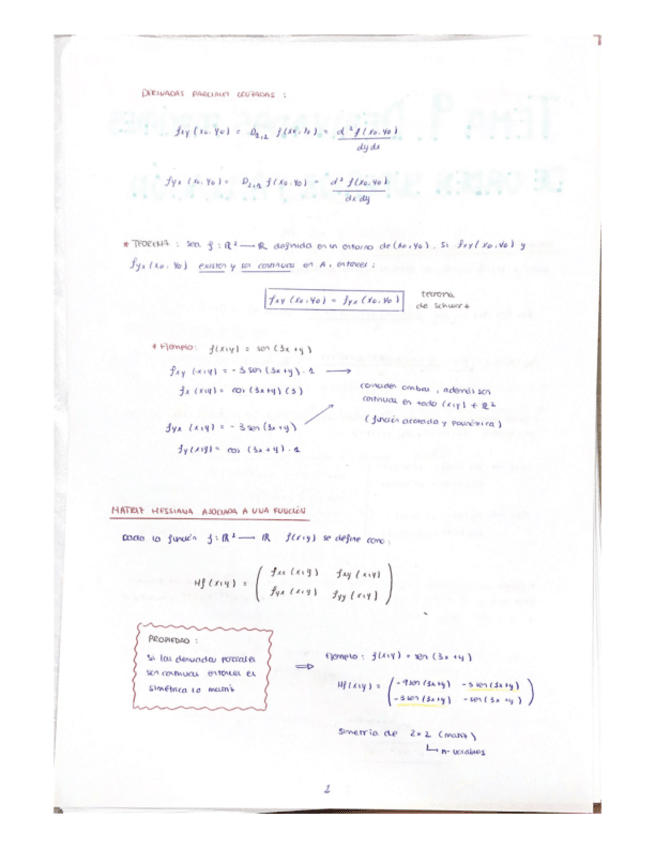 DERIVADAS PARCIALES CRUZADAS :
fxy (x0,y0) = D1,2 f(x0,y0) = d² f(x0,y0)
dy dx
fyx (x0,y0) = D2,1 f(x0,y0) = d² f(x0,y0)
dx dy
* TEOREMA : Sea f : ℝ² → ℝ definida en un entorno de (x0,y0). Si fxy (x0,y0) y
fyx (x0,y0) existen y son continuas en A, entonces :
fxy (x0,y0) = fyx (x0,y0)
teorema
de Schwarz
* Ejemplo: f(x,y) = sen (3x+y)
fxy (x,y) = -3 sen (3x+y) · 1 →
fx (x,y) = cos (3x+y) (3)
coinciden ambas, además son
continuas en todo (x,y) ∈ ℝ²
fyx (x,y) = -3 sen (3x+y)
(función acotada y
fy (x,y) = cos (3x+y) · 1
MATRIZ HESSIANA ASOCIADA A UNA FUNCIÓN
Dada la función f : ℝ² → ℝ f(x,y) se define como:
Hf (x,y) = ( fxx (x,y) fxy (x,y)
fyx (x,y) fyy (x,y) )
PROPIEDAD :
Si las derivadas parciales
son continuas entonces es
simétrica la matriz
⇒ Ejemplo : f(x,y) = sen (3x+y)
Hf (x,y) = ( -9 sen (3x+y) -3 sen (3x+y)
-3 sen (3x+y) -sen (3x+y) )
Simetría de 2x2 (matriz)
n variables
1